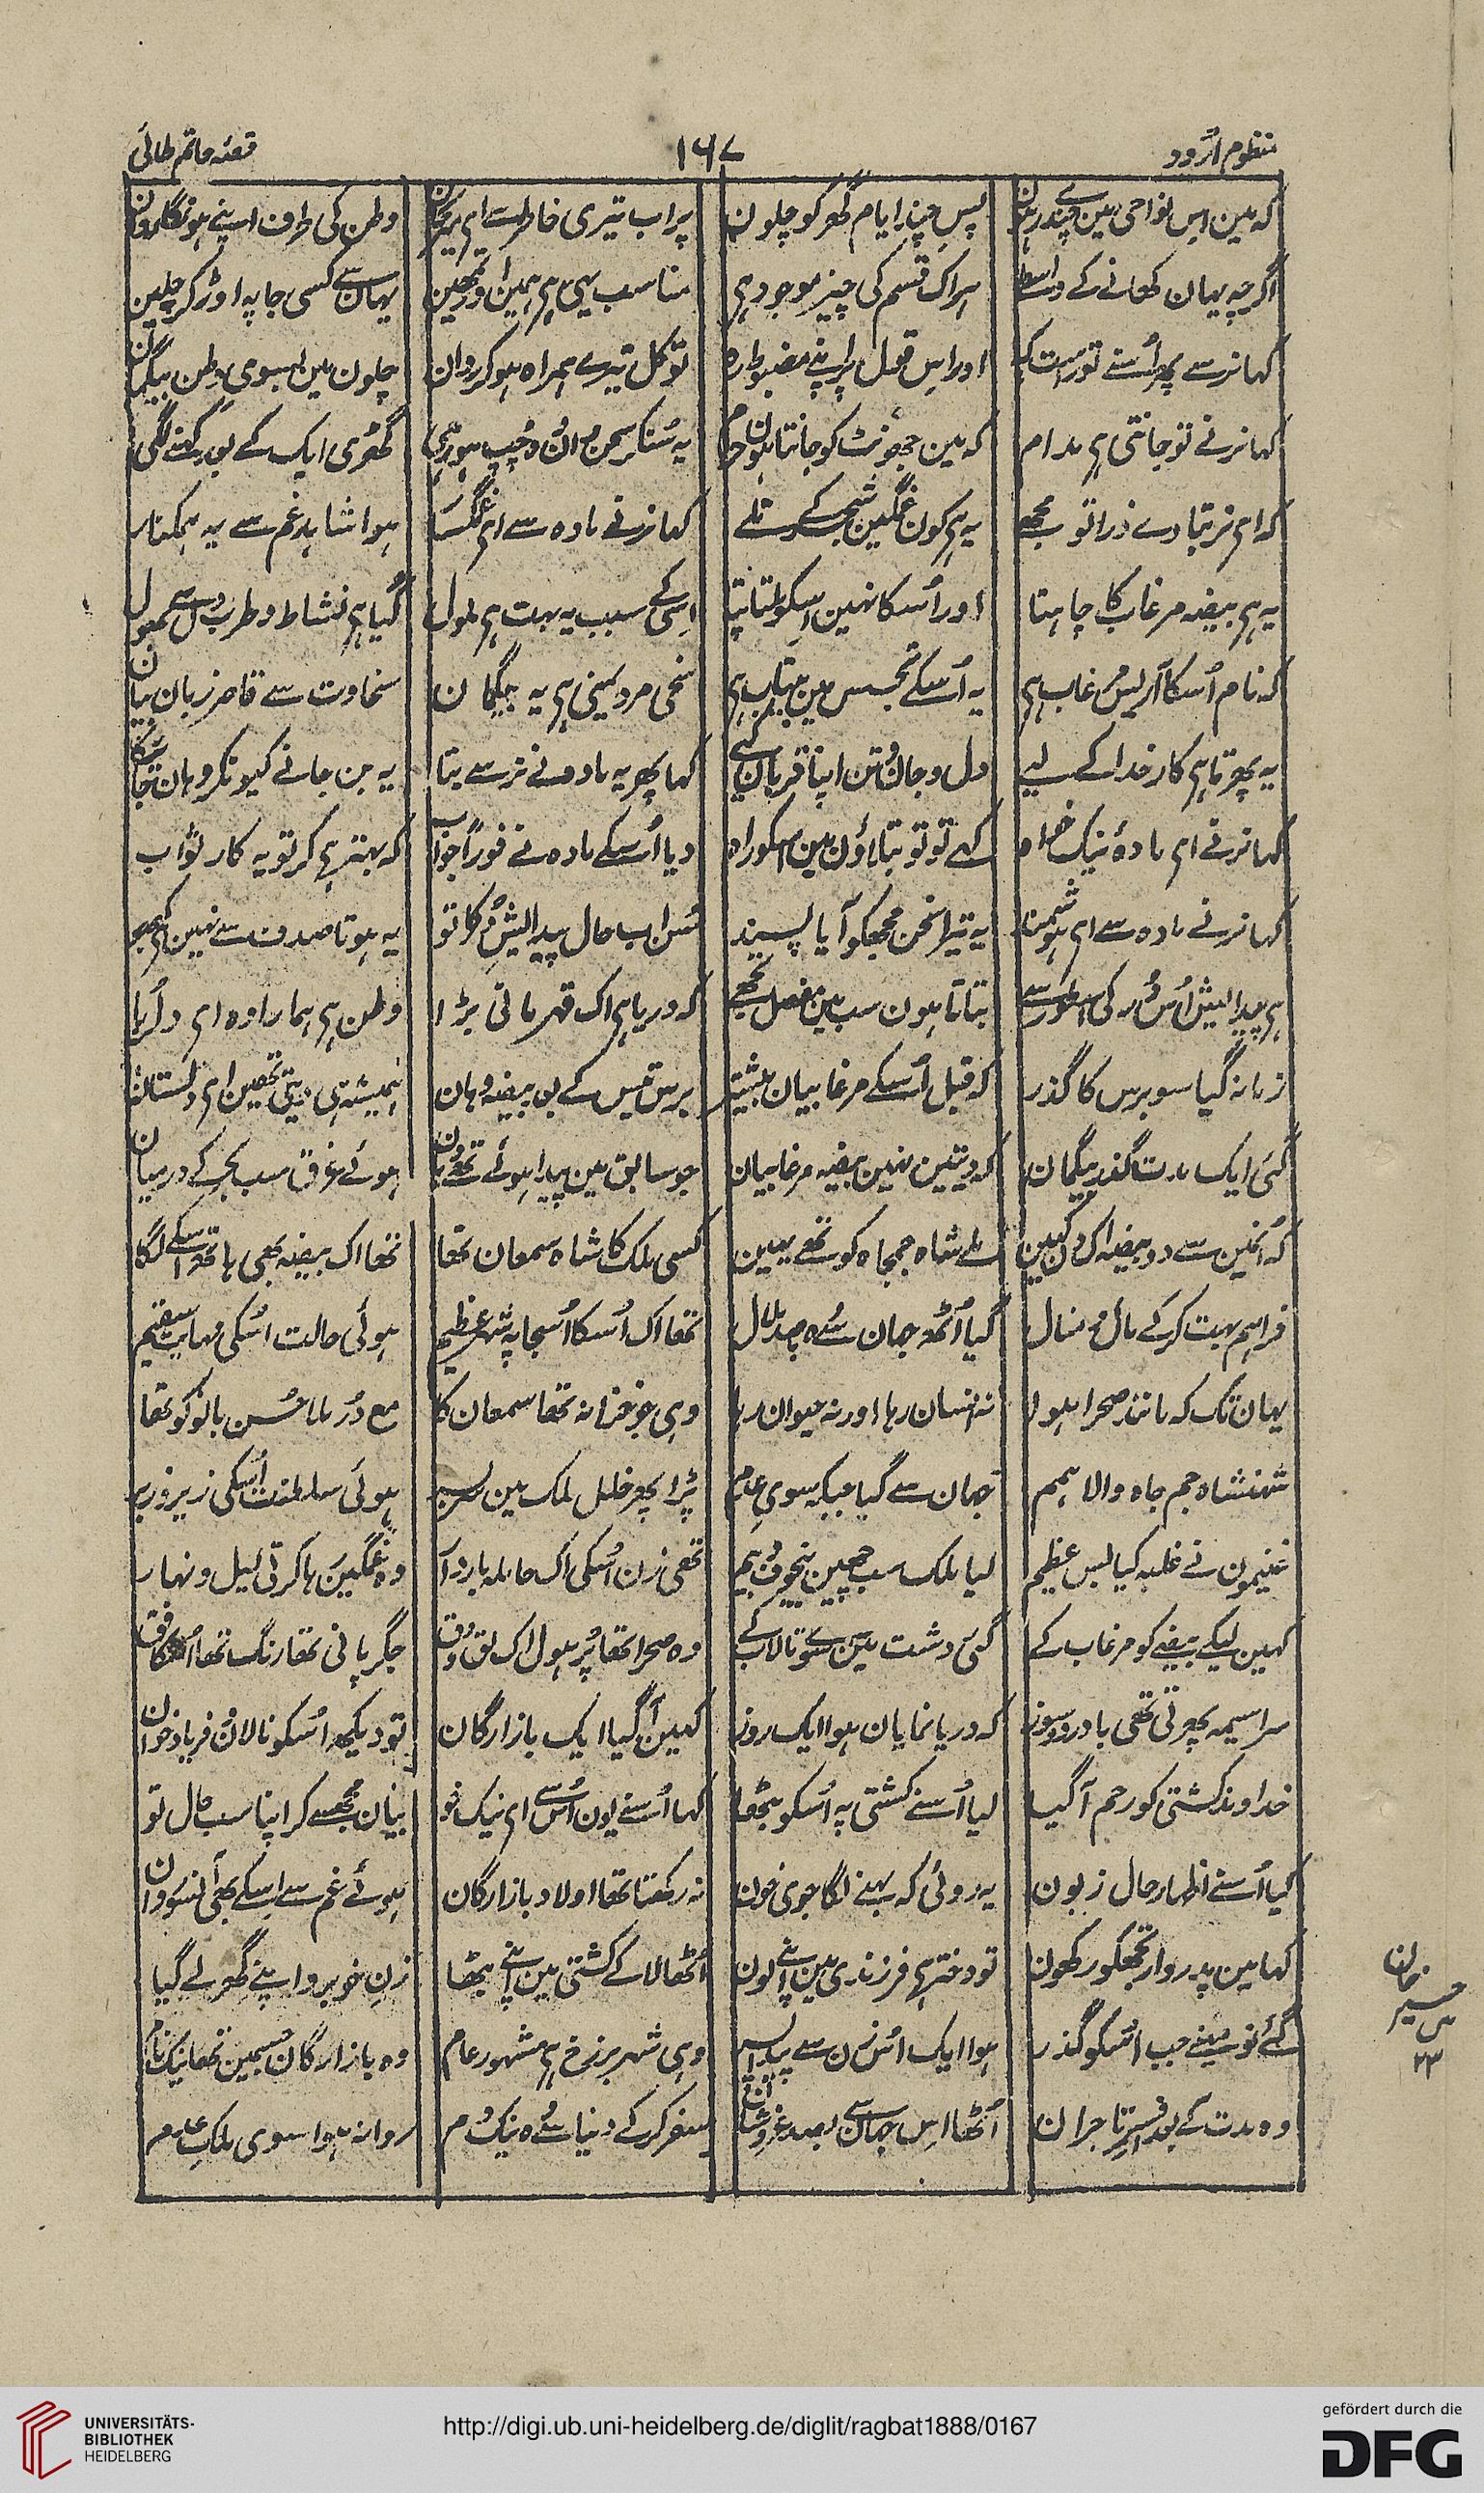 منظوم اردو ۱۶۷ قصہ حاتم طائی
کہ مین اس نواحی مین چندے رہون پس چند ایام گھر کو چلون پر اب تیری خاطر سے ای وطن کی طرف اپنے ہونگا روان
اگرچہ یہان کھانے کے واسطے ہر اک قسم کی چیز موجود ہی مناسب یہی ہی ہمین اور تمھین یہان سے کسی جا پہ اوڑ کر چلین
کہا نر سے پھر اُسنے تو راست کہ اور اس قول پر اپنے مضبوط رہ تو کل تیرے ہمراہ ہو کر روان چلون مین بسوی وطن بیگمان
کہا نر نے تو جانتی ہی مدام کہ مین جھوٹ کو جانتا ہون حرام یہ سُنکر سخن مادہ چپ ہو رہی گھڑی ایک کے بعد کہنے لگی
کہ ای نر بتا دے ذرا تو مجھے یہ ہی کون غمگین شجر کے تلے کہا نر نے مادہ سے ای غمگسار ہوا شاہد غم سے یہ ہمکنار
یہ ہی بیضہ مرغاب کا چاہتا اور اُسکا نہین اسکو ملتا پتا اسی کے سبب یہ بہت ہی ملول گیا ہی نشاط و طرب دل سے بھول
کہ نام اُسکا مرغاب ہی یہ اُسکے تجسس مین بیتاب ہی سخی مرد یمنی ہی یہ بیگمان سخاوت سے قاصر زبان بیان
یہ پھرتا ہی کار خدا کے لیے دل و جان و تن اپنا قربان کیے کہا پھر یہ مادہ نے نر سے بتا یہ بن جانے کیونکر وہان جائیگا
کہا نر نے ای مادۂ نیک خواہ کہے تو تو بتلاؤن مین اسکو راہ دیا اُسکے مادہ نے فوراً جواب کہ بہتر ہی کر تو یہ کار ثواب
کہا نر نے مادہ سے ای ہوشمند یہ تیرا سخن مجھکو آیا پسند سُن اب حال پیدایش دُر کا تو یہ ہوتا صدف سے نہین
ہی پیدایش اُس دُر کی اس طور سے بتاتا ہون سب مین مفصل تجھے کہ دریا ہی اک قہرمانی بڑا وطن ہی ہمارا وہ ای دلربا
زمانہ گیا سو برس کا گذر کہ قبل اُسکے مرغابیان بیشتر برس تیس کے بعد بیضہ وہان ہمیشہ ہی دیتی تھین ای دلستان
گئی ایک مدت گذر بیگمان کہ دیتین نہین بیضہ مرغابیان جو سابق مین پیدا ہوئے تھے وہان ہوئے غرق سب بحر کے درمیان
کہ اُنمین سے دو بیضہ اک دن کہین ملے شاہ جمجاہ کو تھے یہین کسی ملک کا شاہ سمعان تھا تھا اک بیضہ بھی ہاتھ اسکے لگا
فراہم بہت کر کے مال و منال گیا اُٹھ جہان سے وہ بصد ملال تھا اک اُسکا اُس جا پہ شہر عظیم ہوئی حالت اسکی نہایت سقیم
یہان تک کہ مانند صحرا ہوا نہ انسان رہا اور نہ حیوان رہا وہی جو خزانہ تھا سمعان کا مع دُر ملا حُسن بانو کو تھا
شہنشاہ جم جاہ والا ہمم جہان سے گیا جبکہ سوی عدم پڑا پھر خلل ملک مین سر بسر ہوئی سلطنت اُسکی زیر و زبر
غنیمون نے غلبہ کیا بس عظیم لیا ملک سب چھین بیخوف و بیم تھی زن اُسکی اک حاملہ باردار وہ غمگین رہا کرتی لیل و نہار
کہین لیکے بیضے کو مرغاب کے گئی دشت مین سوی تالاب کے وہ صحرا تھا پُر ہول اک لق و دق جگر پانی تھا رنگ تھا فق
سراسیمہ پھرتی تھی بادرد و سوز کہ دریا نمایان ہوا ایک روز کہین آ گیا ایک بازارگان تو دیکھ اُسکو نالان و فریاد خوان
خداوند کشتی کو رحم آ گیا لیا اُسنے کشتی پہ اُسکو بٹھا کہا اُسنے یون اُس سے ای نیک خو بیان مجھسے کر اپنا سب حال تو
کیا اُسنے اظہار حال زبون یہ روئی کہ بہنے لگا جوی خون نہ رکھتا تھا اولاد بازارگان ہوئے غم سے اسکے بھی آنسو روان
کہا مین پدروار تجھکو رکھون تو دختر ہی فرزندی مین اپنے لون اُٹھا لا کے کشتی مین اپنے بٹھا زن خوبرو اپنے گھر لے گیا
گئے نو مہینے جب اسکو گذر ہوا ایک اس زن سے پیدا پسر وہی شہر برزخ ہی مشہور عام وہ بازارگان جسمین تھا نیکنام
وہ مدت کے بعد افسر تاجران اُٹھا اس جہان سے بصد عز و شان سفر کر کے دنیا سے وہ نیک دم روانہ ہوا سوی ملک عدم
۲۳
UNIVERSITÄTS-
BIBLIOTHEK
HEIDELBERG
http://digi.ub.uni-heidelberg.de/diglit/ragbat1888/0167
gefördert durch die
DFG